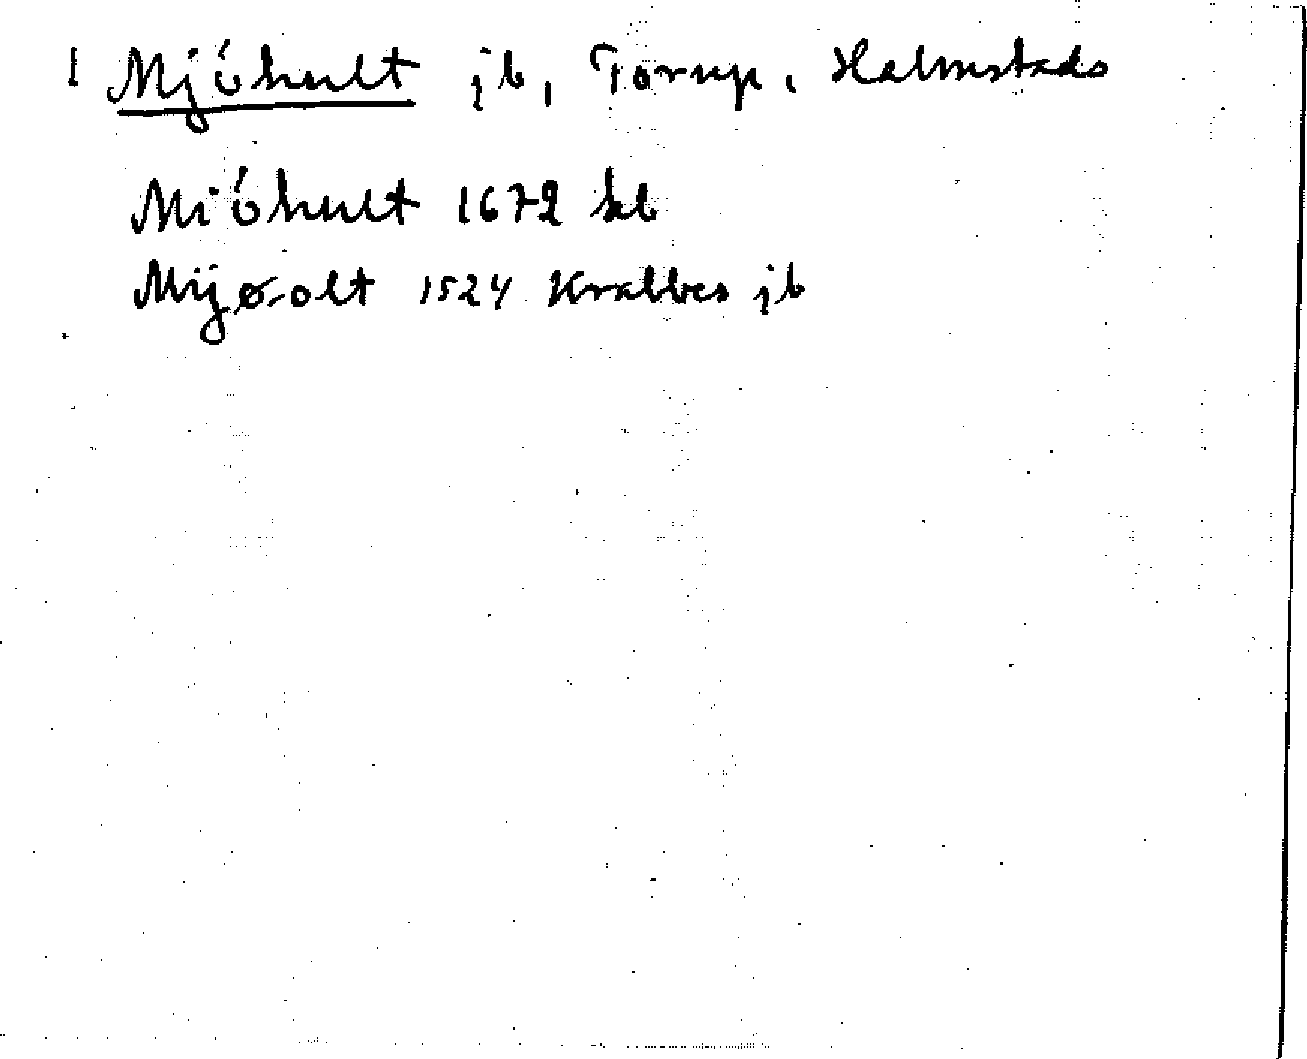 1 Mjöhult jb, Torup, Halmstads
Miöhult 1672 kb
Mijø-olt 1524 Krabbes jb